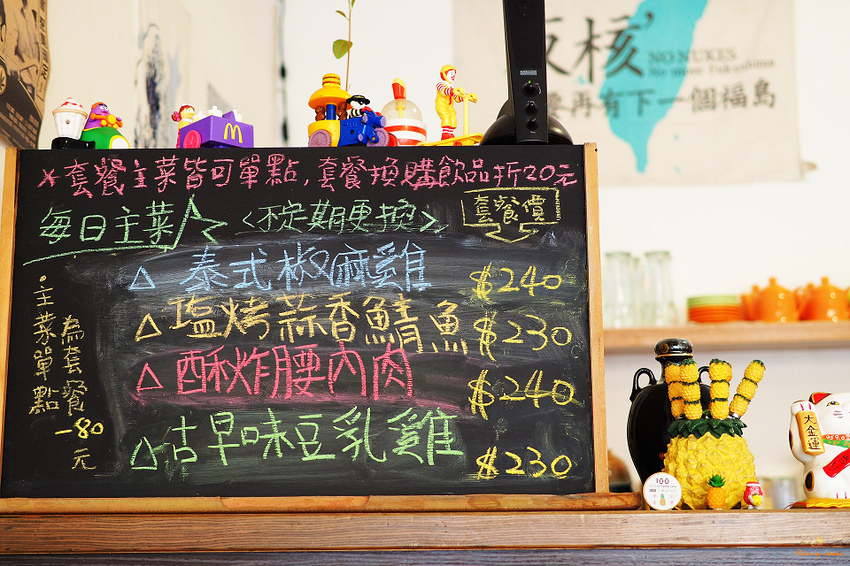 反核
NO NUKES
No more Fukushima
再有下一個福島
×套餐主菜皆可單點,套餐換購飲品折20元
每日主菜 <不定期更換>
套餐價
△ 泰式椒麻雞 $240
△ 塩烤蒜香鯖魚 $230
△ 酥炸腰內肉 $240
△ 古早味豆乳雞 $230
·主菜單點
為套餐
-80
元
大金運
100